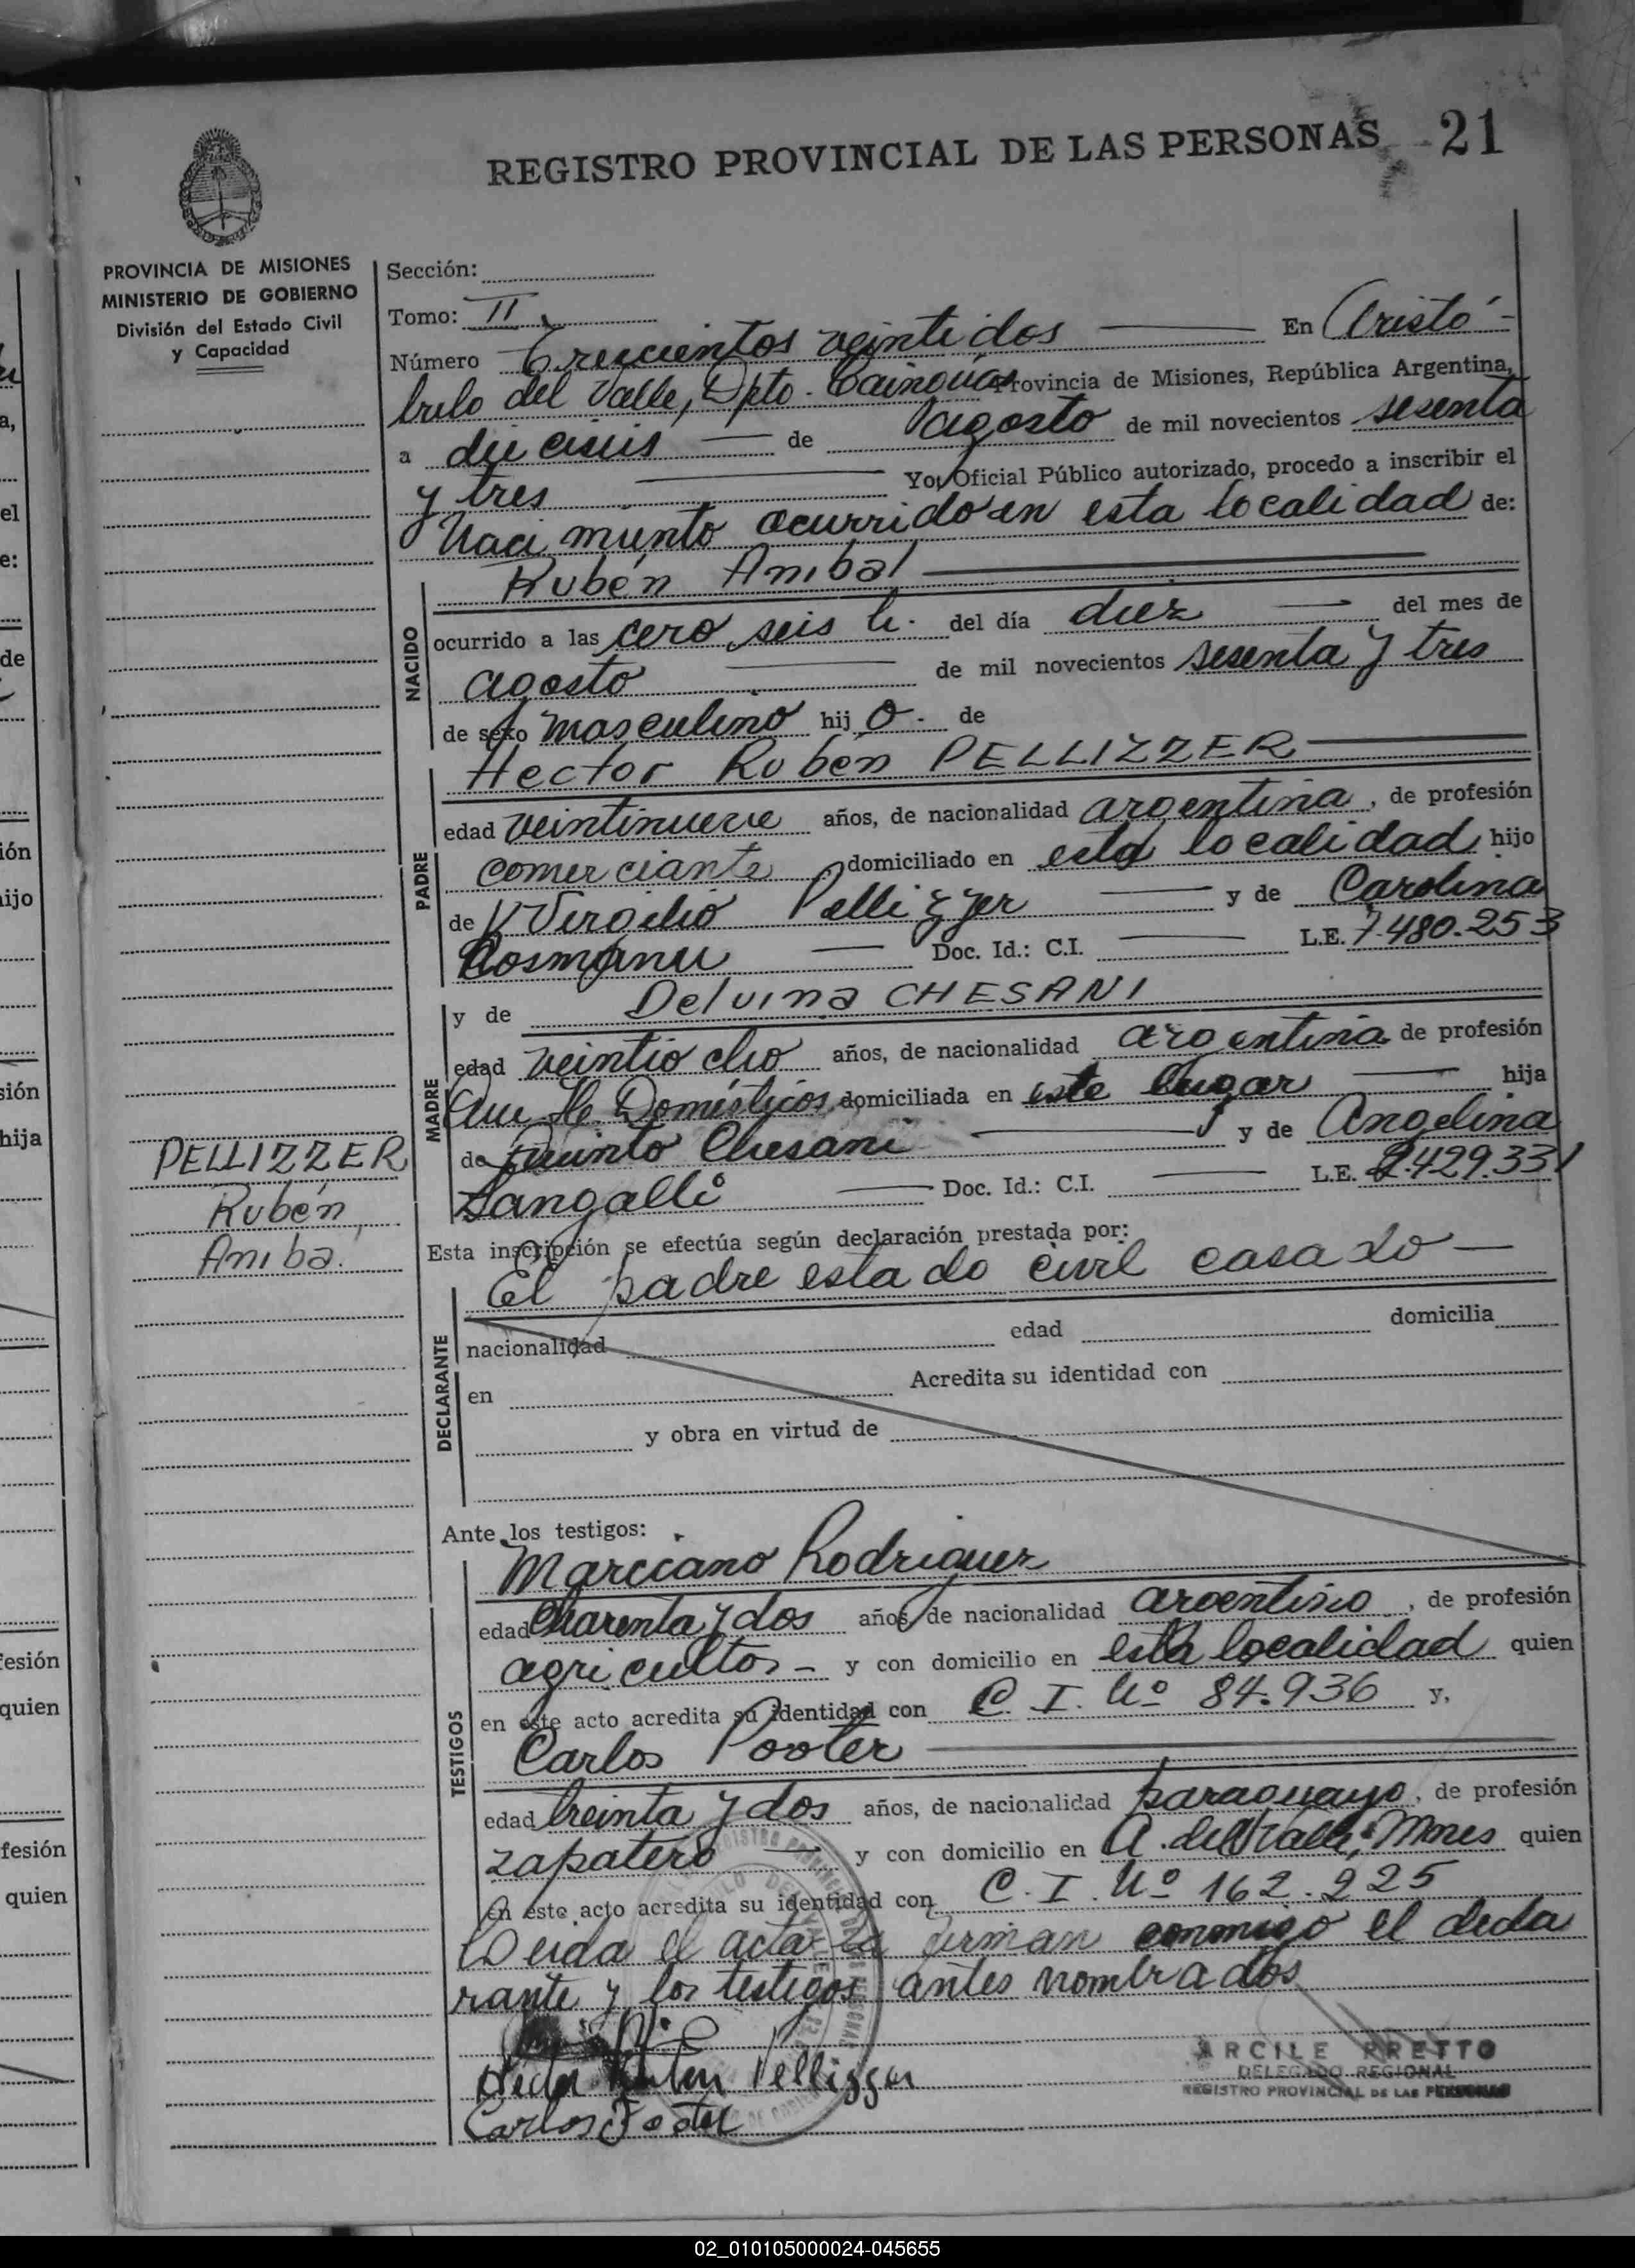 REGISTRO PROVINCIAL DE LAS PERSONAS 21
PROVINCIA DE MISIONES
MINISTERIO DE GOBIERNO
División del Estado Civil
y Capacidad
Sección:
Tomo: II
Número Trescientos veintidos En Aristó-
bulo del Valle, Dpto. Cainguás Provincia de Misiones, República Argentina,
a dieciseis de agosto de mil novecientos sesenta
y tres Yo, Oficial Público autorizado, procedo a inscribir el
Nacimiento ocurrido en esta localidad de:
NACIDO
Rubén Anibal
ocurrido a las cero seis h. del día diez del mes de
agosto de mil novecientos sesenta y tres
de sexo masculino hijo. de
PADRE
Hector Rubén PELLIZZER
edad veintinueve años, de nacionalidad argentina, de profesión
comerciante domiciliado en esta localidad hijo
de Virgilio Pellizzer y de Carolina
Doc. Id.: C.I. L.E. 7.480.253
MADRE
y de Delvina CHESANI
edad veintiocho años, de nacionalidad argentina de profesión
Domésticos domiciliada en este lugar hija
de Quinto Chesani y de Angelina
Sangalli Doc. Id.: C.I. L.E. 2.429.331
PELLIZZER
Rubén
Anibal
Esta inscripción se efectúa según declaración prestada por:
DECLARANTE
El padre estado civil casado
nacionalidad edad domicilia
en Acredita su identidad con
y obra en virtud de
Ante los testigos:
TESTIGOS
Marciano Rodriguez
edad Cuarenta y dos años, de nacionalidad argentino, de profesión
agricultor - y con domicilio en esta localidad quien
en este acto acredita su identidad con C. I. Nº 84.936 y,
Carlos Pooter
edad treinta y dos años, de nacionalidad paraguayo, de profesión
zapatero y con domicilio en A. del Valle, Mnes quien
en este acto acredita su identidad con C. I. Nº 162.225
Leida el acta la firman conmigo el decla
rante y los testigos antes nombrados
Hector Ruben Pellizzer
Carlos
ARCILE PRETTO
DELEGADO REGIONAL
REGISTRO PROVINCIAL DE LAS PERSONAS
02_010105000024-045655